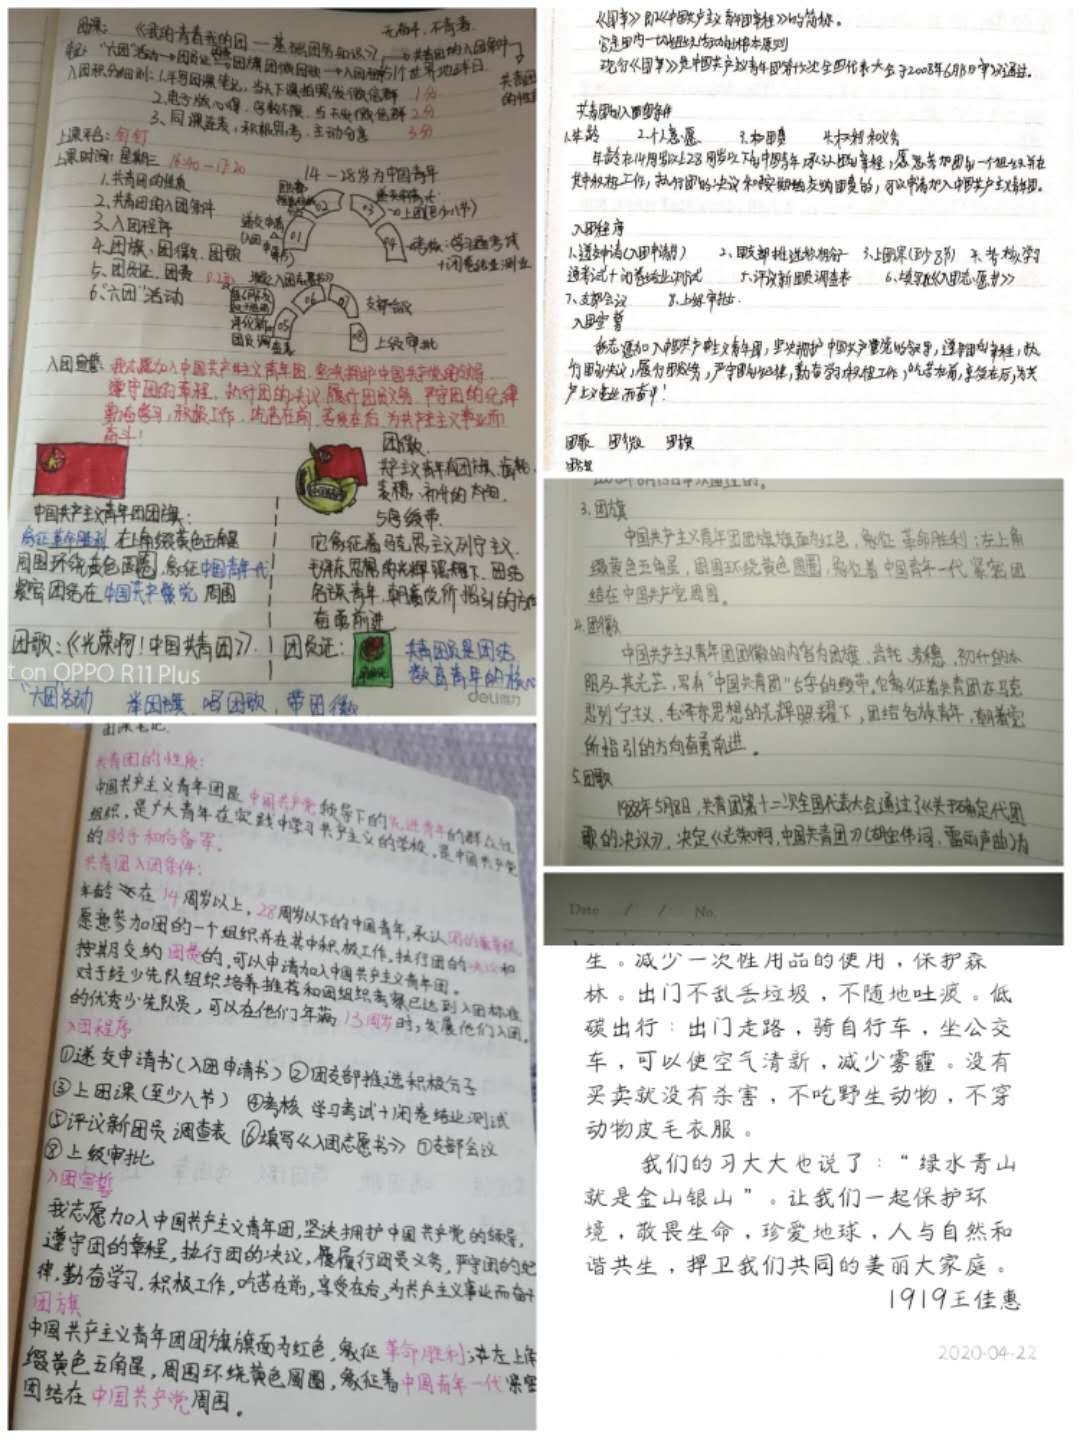 团课：《我的青春我的团——基础团务知识》
无奋斗，不青春
上课平台：钉钉
上课时间：星期三 16:40—17:20
14—28岁为中国青年
1.共青团的性质
2.共青团的入团条件
3.入团程序
4.团旗、团徽、团歌
5.团员证、团费
6."六团"活动
支部会议
上级审批
入团宣誓：我志愿加入中国共产主义青年团，坚决拥护中国共产党的领导，
遵守团的章程，执行团的决议，履行团员义务，严守团的纪律
勤奋学习，积极工作，吃苦在前，享受在后，为共产主义事业而
奋斗！
中国共产主义青年团团旗：
象征革命胜利 左上角缀黄色五角星
周围环绕黄色圆圈，象征中国青年一代
紧密团结在中国共产党周围
团徽：
共产主义青年团团旗、齿轮、
麦穗、初升的太阳、
它象征着马克思主义列宁主义、
毛泽东思想的光辉照耀下，团结
各族青年，朝着党所指引的方向
奋勇前进
团歌：《光荣啊！中国共青团》
团员证：
t on OPPO R11 Plus
deli得力
"六团"活动 举团旗、唱团歌、带团徽
《团章》即《中国共产主义青年团章程》的简称。
现行《团章》是中国共产主义青年团第十六次全国代表大会于2008年6月13日审议通过。
1.年龄 2.个人意愿 3.和团费 4.权利和义务
年龄在14周岁以上28周岁以下的中国青年，承认团的章程，愿意参加团的一个组织并在
其中积极工作，执行团的决议和按期缴纳团费的，可以申请加入中国共产主义青年团。
入团程序
1.递交申请（入团申请书） 2、团支部推选积极分子 3.上团课（至少8节） 4、考核，学习
通考试＋闭卷结业测试 5、评议新团员调查表 6、填写《入团志愿书》
7、支部会议 8.上级审批.
入团宣誓
我志愿加入中国共产主义青年团，坚决拥护中国共产党的领导，遵守团的章程，执
行团的决议，履行团员义务，严守团的纪律，勤奋学习，积极工作，吃苦在前，享受在后，为共
产主义事业而奋斗！
团歌 团徽 团旗
3.团旗
中国共产主义青年团团旗旗面为红色，象征革命胜利；左上角
缀黄色五角星，周围环绕黄色圆圈，象征着中国青年一代紧密团
结在中国共产党周围。
4.团徽
中国共产主义青年团团徽的内容为团旗、齿轮、麦穗、初升的太
阳及其光芒，写有"中国共青团"五字的绶带。它象征着共青团在马克
思列宁主义、毛泽东思想的光辉照耀下，团结各族青年，朝着党
所指引的方向奋勇前进。
5.团歌
1988年5月8日，共青团第十二次全国代表大会通过了《关于确定代团
歌的决议》，决定《光荣啊，中国共青团》（胡宏伟词、雷雨声曲）为
团课笔记
共青团的性质：
中国共产主义青年团是中国共产党领导下的先进青年的群众性
组织，是广大青年在实践中学习共产主义的学校，是中国共产党
的助手和后备军。
共青团入团条件：
年龄在14周岁以上，28周岁以下的中国青年，承认团的章程，
愿意参加团的一个组织并在其中积极工作，执行团的决议和
按期交纳团费的，可以申请加入中国共产主义青年团。
对于经少先队组织培养推荐和团组织考察已达到入团标准
的优秀少先队员，可以在他们年满13周岁时，发展他们入团。
入团程序
①递交申请书（入团申请书）②团支部推选积极分子
③上团课（至少八节） ④考核 学习考试＋闭卷结业测试
⑤评议新团员调查表 ⑥填写《入团志愿书》 ⑦支部会议
⑧上级审批
入团宣誓
我志愿加入中国共产主义青年团，坚决拥护中国共产党的领导，
遵守团的章程，执行团的决议，履行团员义务，严守团的纪
律，勤奋学习，积极工作，吃苦在前，享受在后，为共产主义事业而奋斗
团旗
中国共产主义青年团团旗旗面为红色，象征革命胜利；左上角
缀黄色五角星，周围环绕黄色圆圈，象征着中国青年一代紧密
团结在中国共产党周围。
Date / / No.
生。减少一次性用品的使用，保护森
林。出门不乱丢垃圾，不随地吐痰。低
碳出行：出门走路，骑自行车，坐公交
车，可以使空气清新，减少雾霾。没有
买卖就没有杀害，不吃野生动物，不穿
动物皮毛衣服。
我们的习大大也说了："绿水青山
就是金山银山"。让我们一起保护环
境，敬畏生命，珍爱地球，人与自然和
谐共生，捍卫我们共同的美丽大家庭。
1919王佳惠
2020-04-22